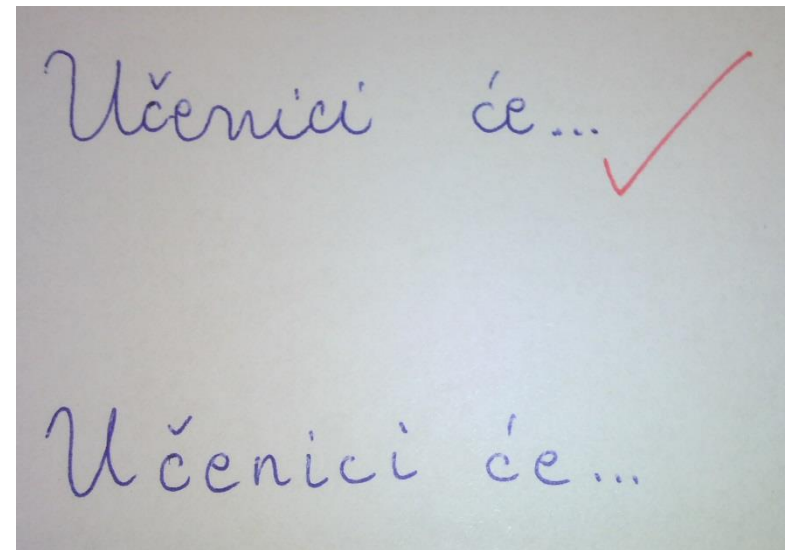 Učenici će...
Učenici će...